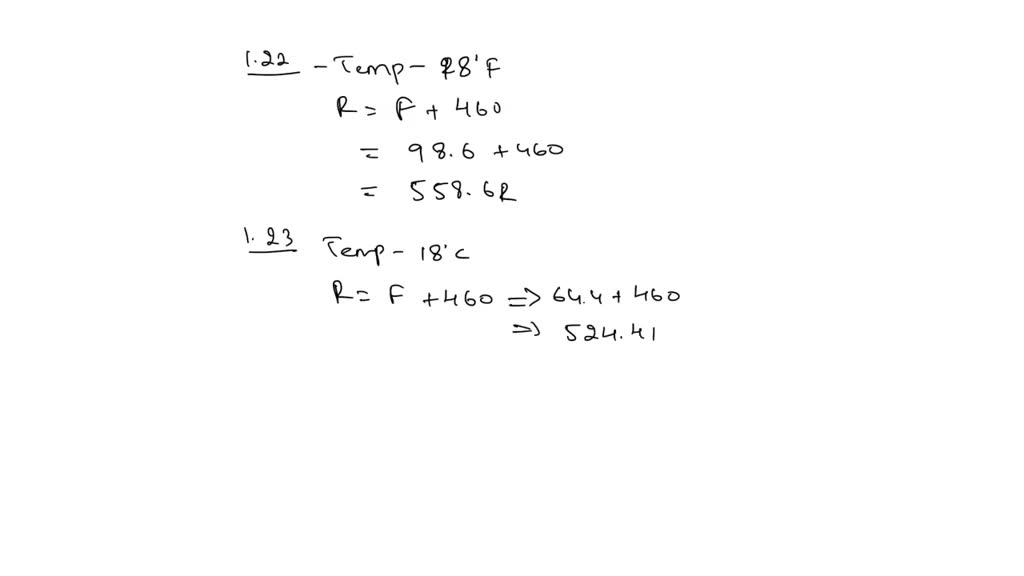 1.22 - Temp - 98°F
R = F + 460
= 98.6 + 460
= 558.6R
1.23 Temp - 18°C
R = F + 460 => 64.4 + 460
=> 524.41